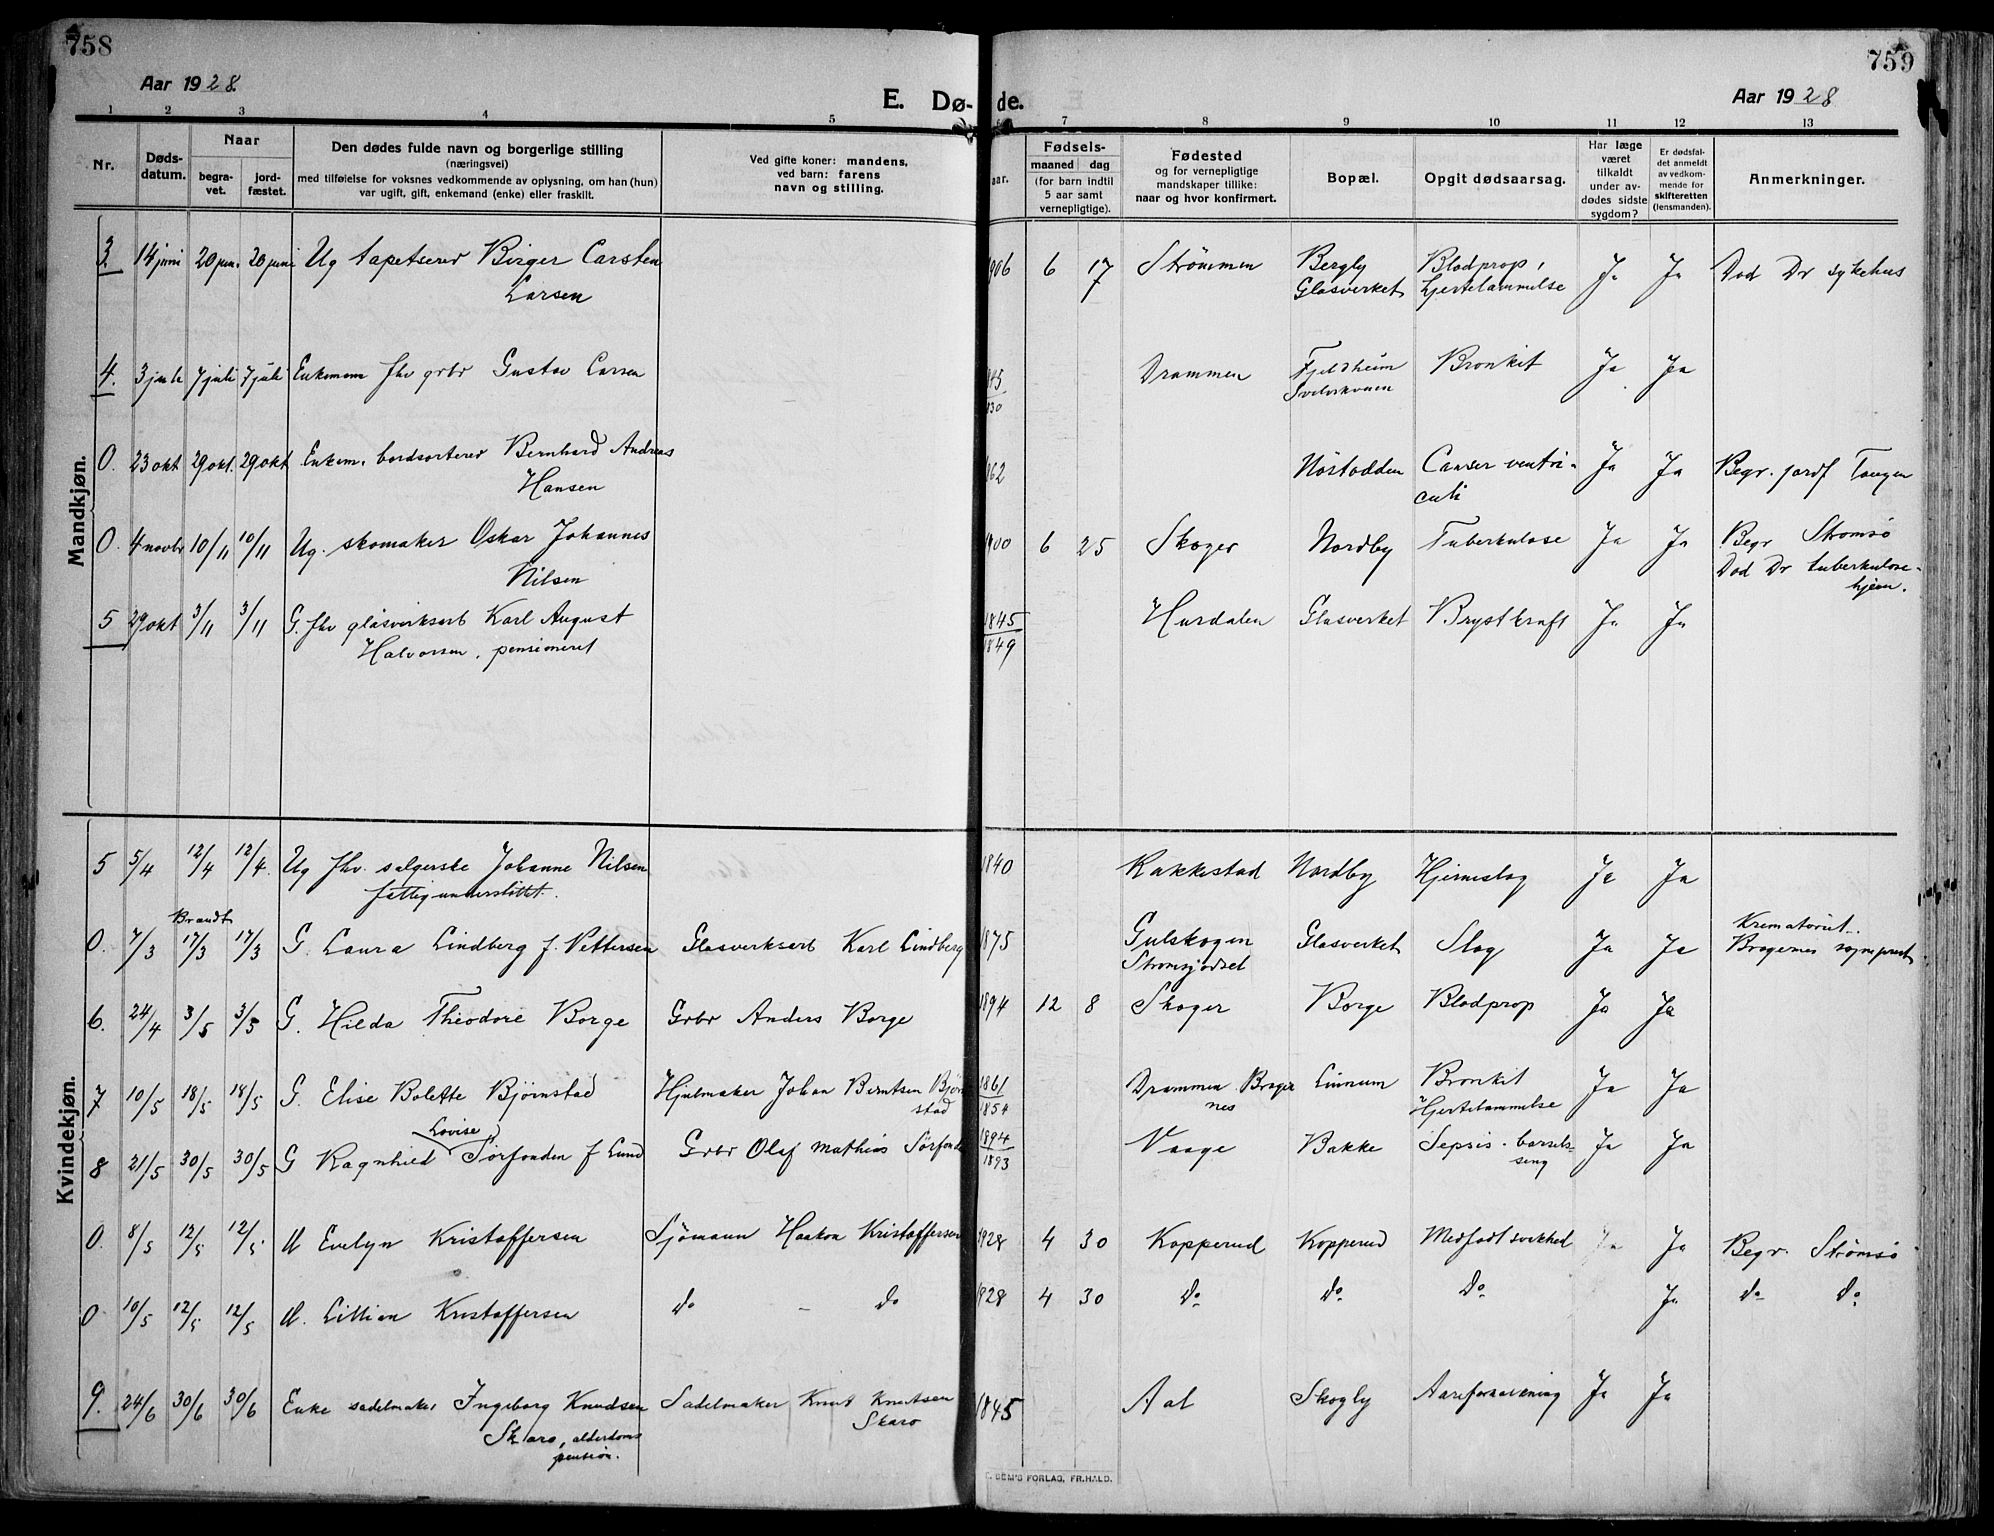 758
759
Aar 1928.
E. Dø-
de.
Aar 1928
1 2 3 4 5 6 7 8 9 10 11 12 13
Nr.
Døds-
datum.
Naar
begra-
vet.
jord-
fæstet.
Den dødes fulde navn og borgerlige stilling
(næringsvei)
med tilføielse for voksnes vedkommende av oplysning, om han (hun)
var ugift, gift, enkemand (enke) eller fraskilt.
Ved gifte koner: mandens,
ved barn: farens
navn og stilling.
aar.
Fødsels-
maaned dag
(for barn indtil
5 aar samt
vernepligtige).
Fødested
og for vernepligtige
mandskaper tillike:
naar og hvor konfirmert.
Bopæl.
Opgit dødsaarsag.
Har læge
været
tilkaldt
under av-
dødes sidste
sygdom?
Er dødsfal-
det anmeldt
av vedkom-
mende for
skifteretten
(lensmanden).
Anmerkninger.
Mandkjøn.
3. 14 juni 20 jun. 20 juni Ug tapetserer Birger Carsten 1906 6 17 Strømmen Bergly Blodprop, Ja Ja Død Dr sykehus
Larsen Glasverket Hjertelammelse
4. 3 juli 7 juli 7 juli Enkem fhv grbr Gustav Larsen 1843 Drammen Fjeldheim Bronkit Ja Ja
1830 Svelviksveien
0. 23 okt 29 okt. 29 okt Enkem. bordsorterer Bernhard Andreas 1862 Nøstodden Canser ventri- Ja Ja Begr. jordf Tangen
Hansen culi
0. 4 novbr 10/11 10/11 Ug. skomaker Oskar Johannes 1900 6 25 Skoger Nordby Tuberkulose Ja Ja Begr Strømsø
Nilsen Død Dr tuberkulose-
hjem.
5 29 okt 3/11 3/11 G. fhv glasverksarb Karl August 1845 Hurdalen Glasverket Brystkraft Ja Ja
Halvorsen, pensioneret 1849
Kvindekjøn.
5 5/4 12/4 12/4. Ug fhv. selgerske Johanne Nilsen 1840 Rakkestad Nordby Hjerneslag Ja Ja
fattigunderstøttet.
Brandt Krematoriet.
0. 7/3 17/3 17/3 G. Laura Lindberg f. Pettersen Glasverksarb Karl Lindberg 1875 Gulskogen Glasverket Slag Ja Ja Bragernes sogneprest
Strømsgodset
6. 24/4 3/5 3/5 G. Hilda Theodore Borge Grbr Anders Borge 1894 12 8 Skoger Borge Blodprop Ja Ja
7 10/5 18/5 18/5 G. Elise Bolette Bjørnstad Hjulmaker Johan Berntsen Bjørn 1861 Drammen Brager Linnum Bronkit Ja Ja
stad 1854 nes Hjertelammelse
Lovise
8 21/5 30/5 30/5 G Ragnhild Sørfonden f Lund Grbr Olaf Mathias Sørfonde 1894 Vaage Bakke Sepsis. barsels- Ja Ja
1893 seng
0. 8/5 12/5 12/5. U Evelyn Kristoffersen Sjømann Haakon Kristoffersen 1928 4 30 Kopperud Kopperud Medfødt svækhed Ja Ja Begr. Strømsø
0 10/5 12/5 12/5 U. Lillian Kristoffersen do - do 1928 4 30 do do Do Ja do do
9. 24/6 30/6 30/6 Enke sadelmaker Ingeborg Knudsen Sadelmaker Knut Knutsen 1845 Aal Skogly Aareforkalkning Ja Ja
Skaro, alderdoms Skaro
pension.
SEM'S FORLAG, FR.HALD.